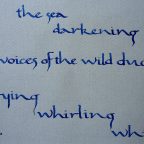 the sea
darkening
voices of the wild duc
ying
whirling
wh
.